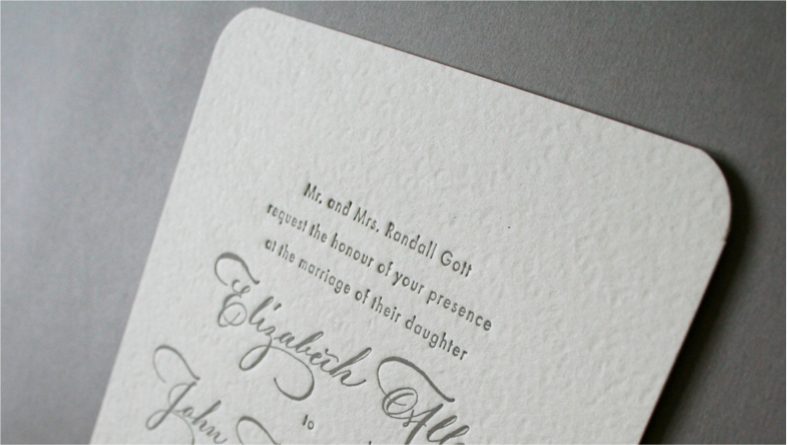 Mr. and Mrs. Randall Gott
request the honour of your presence
at the marriage of their daughter
Elizabeth
to
John